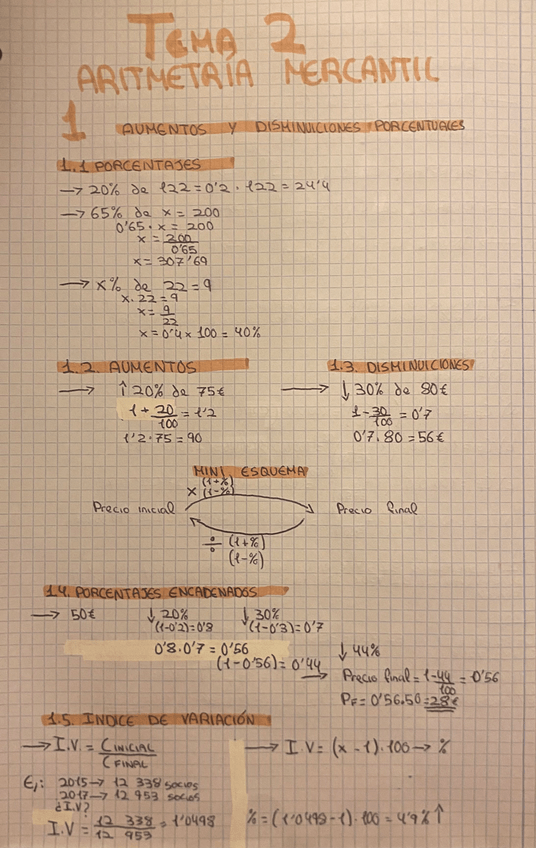 TEMA 2
ARITMETRÍA MERCANTIL
1 AUMENTOS Y DISMINUICIONES PORCENTUALES
1.1 PORCENTAJES
→ 20% de 122 = 0'2 · 122 = 24'4
→ 65% de x = 200
0'65 · x = 200
x = 200/0'65
x = 307'69
→ x% de 22 = 9
x · 22 = 9
x = 9/22
x = 0'4 x 100 = 40%
1.2. AUMENTOS
→ ↑ 20% de 75€
1 + 20/100 = 1'2
1'2 · 75 = 90
1.3. DISMINUICIONES
→ ↓ 30% de 80€
1 - 30/100 = 0'7
0'7 · 80 = 56€
MINI ESQUEMA
x (1+%)
(1-%)
Precio inicial → Precio final
÷ (1+%)
(1-%)
1.4. PORCENTAJES ENCADENADOS
→ 50€ ↓ 20% ↓ 30%
(1-0'2)=0'8 (1-0'3)=0'7
0'8 · 0'7 = 0'56
(1-0'56) = 0'44 → ↓ 44%
Precio final = 1-44/100 = 0'56
PF = 0'56 · 50 = 28€
1.5. INDICE DE VARIACIÓN
→ I.V. = C INICIAL / C FINAL
→ I.V = (x - 1) · 100 → %
Ej: 2015 → 12 338 socios
2017 → 12 953 socios
¿I.V?
I.V = 12 338 / 12 953 = 1'0498
% = (1'0498-1) · 100 = 4'9% ↑